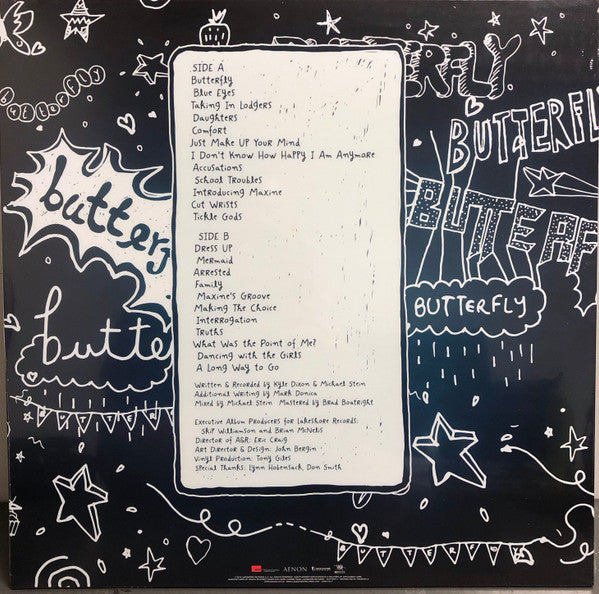 butterfly
BUTTERFLY
butterfly
BUTTERFLY
BUTTERFLY
SIDE A
Butterfly
Blue Eyes
Taking In Lodgers
Daughters
Comfort
Just Make Up Your Mind
I Don't Know How Happy I Am Anymore
Accusations
School Troubles
Introducing Maxine
Cut Wrists
Tickle Gods
SIDE B
Dress Up
Mermaid
Arrested
Family
Maxine's Groove
Making The Choice
Interrogation
Truths
What Was the Point of Me?
Dancing with the Girls
A Long Way to Go
Written & Recorded by Kyle Dixon & Michael Stein
Additional Writing by Mark Donica
Mixed by Michael Stein Mastered by Brad Boatright
Executive Album Producers for Lakeshore Records:
Skip Williamson and Brian McNelis
Director of A&R: Eric Craig
Art Director & Design: John Bergin
Vinyl Production: Tony Giles
Special Thanks: Lynn Hobensack, Don Smith
BUTTERFLY
AENON